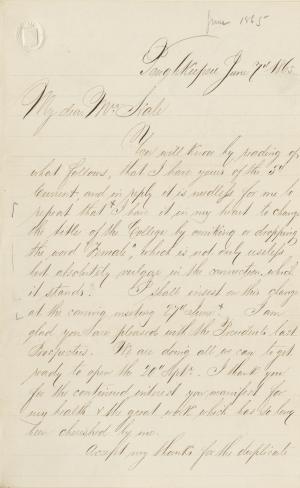 June 1865
Poughkeepsie June 7th 1865
My dear Mrs Hale
You will know by reading of
what follows, that I have yours of the 5th
Current, and in reply it is needless for me to
repeat that I have it in my heart to change
the title of the College by omitting or dropping
the word "Female", which is not only useless
but absolutely vulgar in the connection which
it stands. I shall insist on this change
at the coming meeting 27th
I am
glad you are pleased with the Presidents last
Prospectus. We are doing all we can to get
ready to open the 20th Sept. I thank you
for the continued interest you manifest for
my health & the great work which has so long
been cherished by me.
Accept my thanks for the duplicate